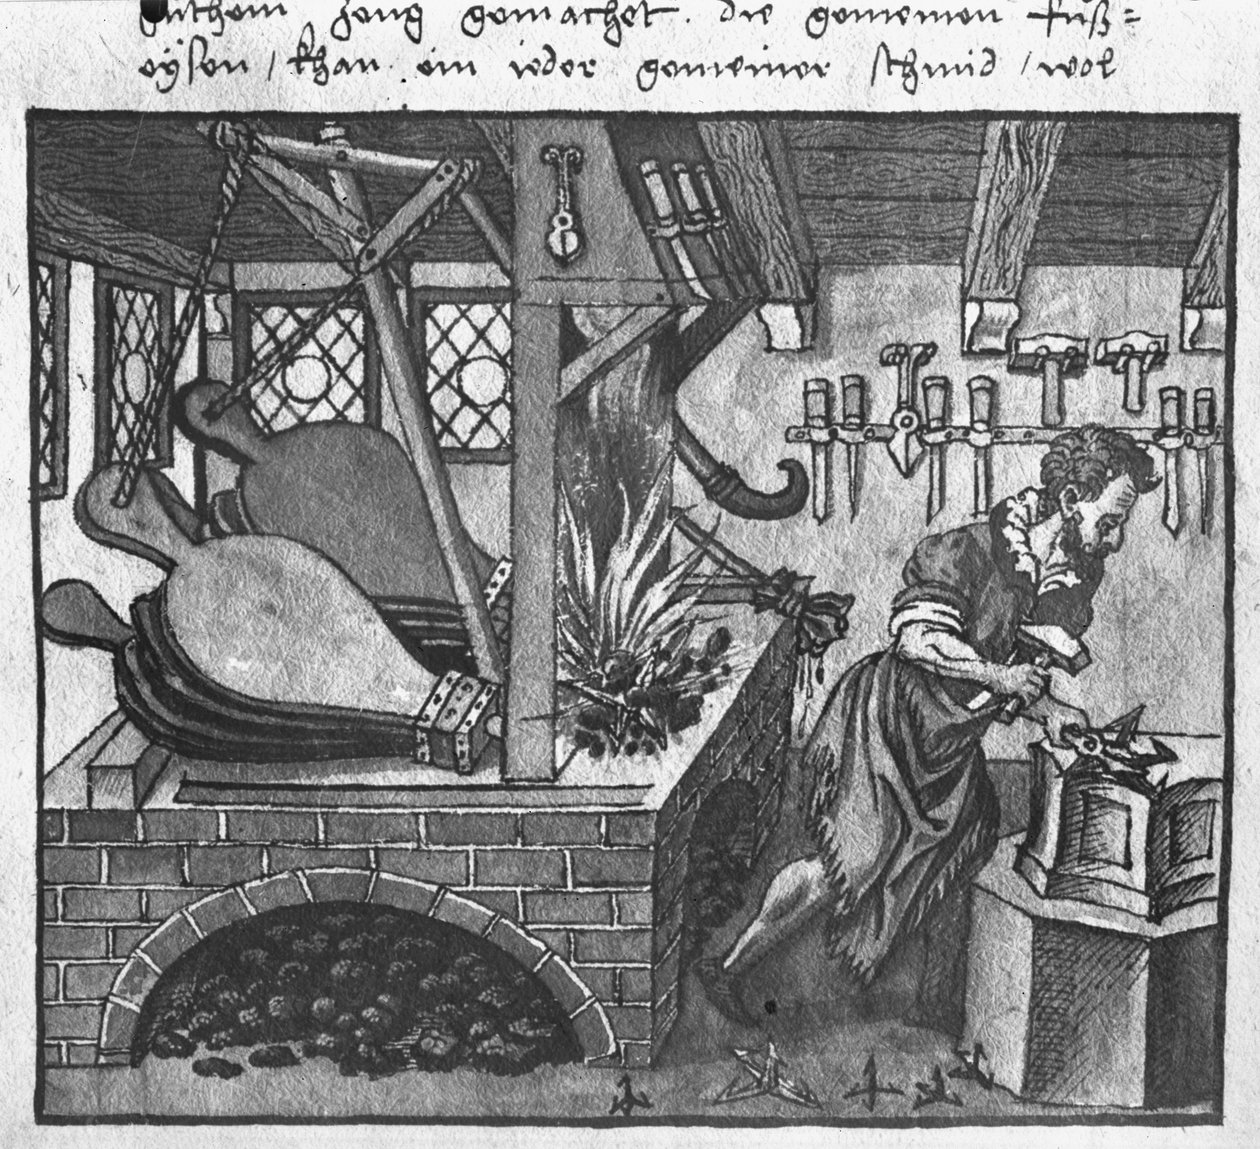 zeug gemachet. die gemeinen Fuß=
eÿsen / khan ein ieder gemeiner schmid / wol